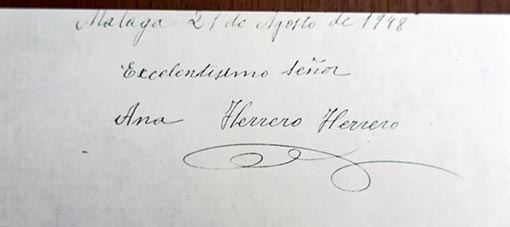 Malaga 21 de Agosto de 1948
Excelentisimo señor
Ana Herrero Herrero